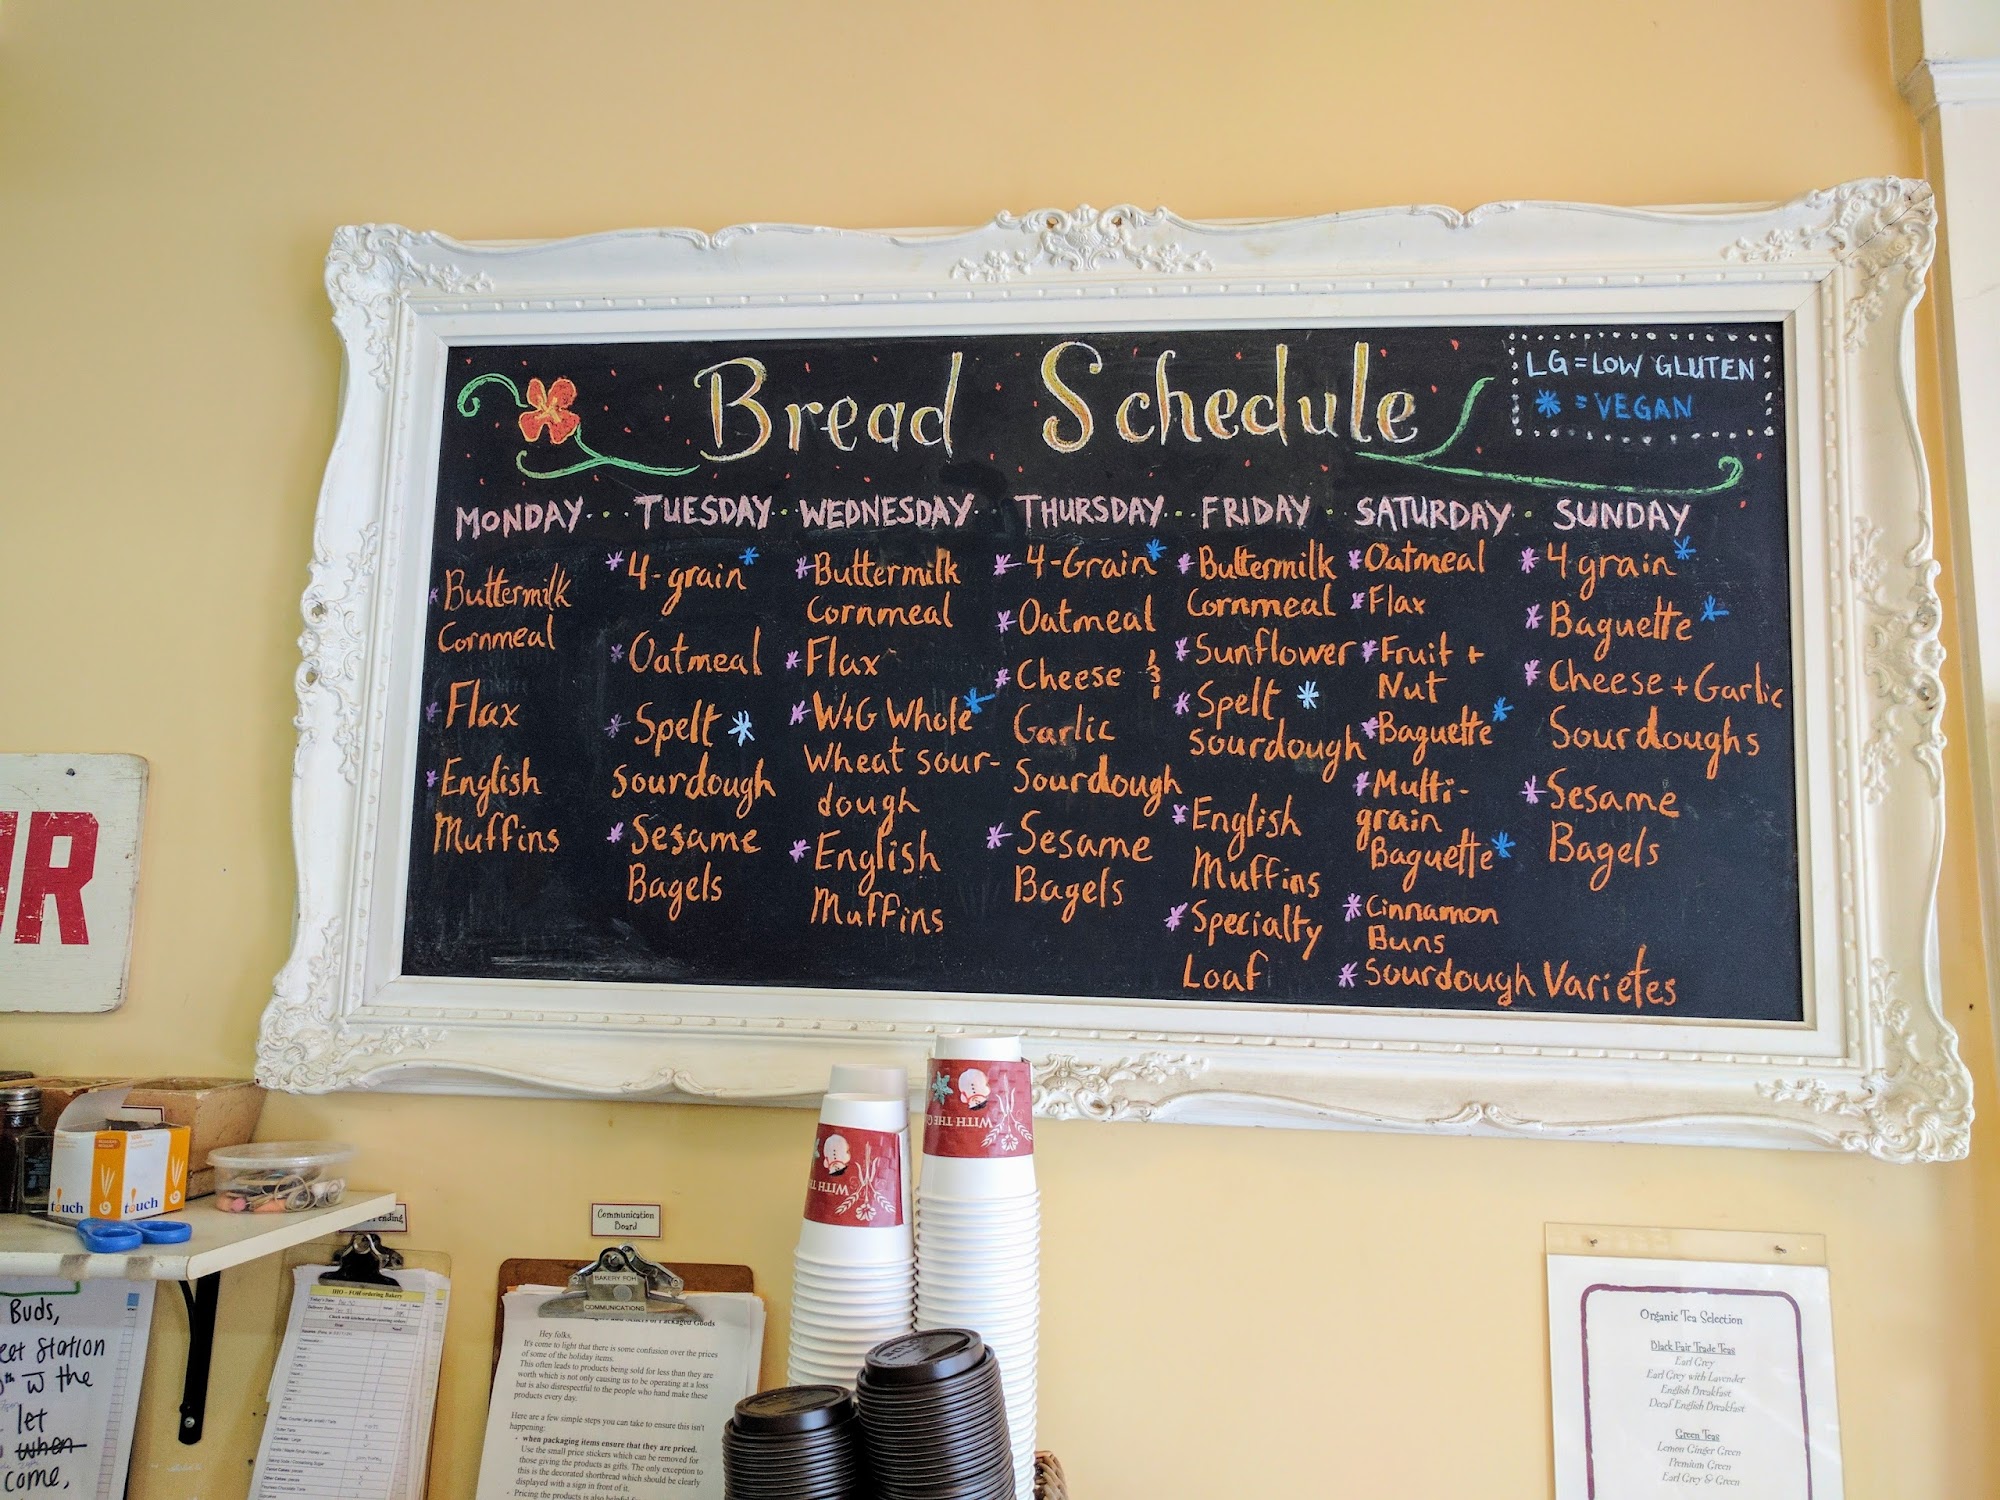 Bread Schedule
LG = LOW GLUTEN
* = VEGAN
MONDAY
* Buttermilk
Cornmeal
* Flax
* English
Muffins
TUESDAY
* 4-grain *
* Oatmeal
* Spelt *
sourdough
* Sesame
Bagels
WEDNESDAY
* Buttermilk
Cornmeal
* Flax
* W+G Whole *
Wheat sour-
dough
* English
Muffins
THURSDAY
* 4-Grain *
* Oatmeal
* Cheese &
Garlic
Sourdough
* Sesame
Bagels
FRIDAY
* Buttermilk
Cornmeal
* Sunflower
* Spelt *
sourdough
* English
Muffins
* Specialty
Loaf
SATURDAY
* Oatmeal
* Flax
* Fruit +
Nut
* Baguette *
* Multi-
grain
Baguette *
* Cinnamon
Buns
* Sourdough Varietes
SUNDAY
* 4 grain *
* Baguette *
* Cheese + Garlic
Sourdoughs
* Sesame
Bagels
touch
touch
Buds,
Station
the
let
when
come,
Communication
Board
BAKERY FOH
COMMUNICATIONS
of Packaged Goods
Hey folks,
It's come to light that there is some confusion over the prices
of some of the holiday items.
This often leads to products being sold for less than they are
worth which is not only causing us to be operating at a loss
but is also disrespectful to the people who hand make these
products every day.
Here are a few simple steps you can take to ensure this isn't
happening:
- when packaging items ensure that they are priced.
Use the small price stickers which can be removed for
those giving the products as gifts. The only exception to
this is the decorated shortbread which should be clearly
displayed with a sign in front of it.
- Pricing the products is also
WITH THE
WITH TH
Organic Tea Selection
Black Fair Trade Teas
Earl Grey
Earl Grey with Lavender
English Breakfast
Decaf English Breakfast
Green Teas
Lemon Ginger Green
Premium Green
Earl Grey & Green